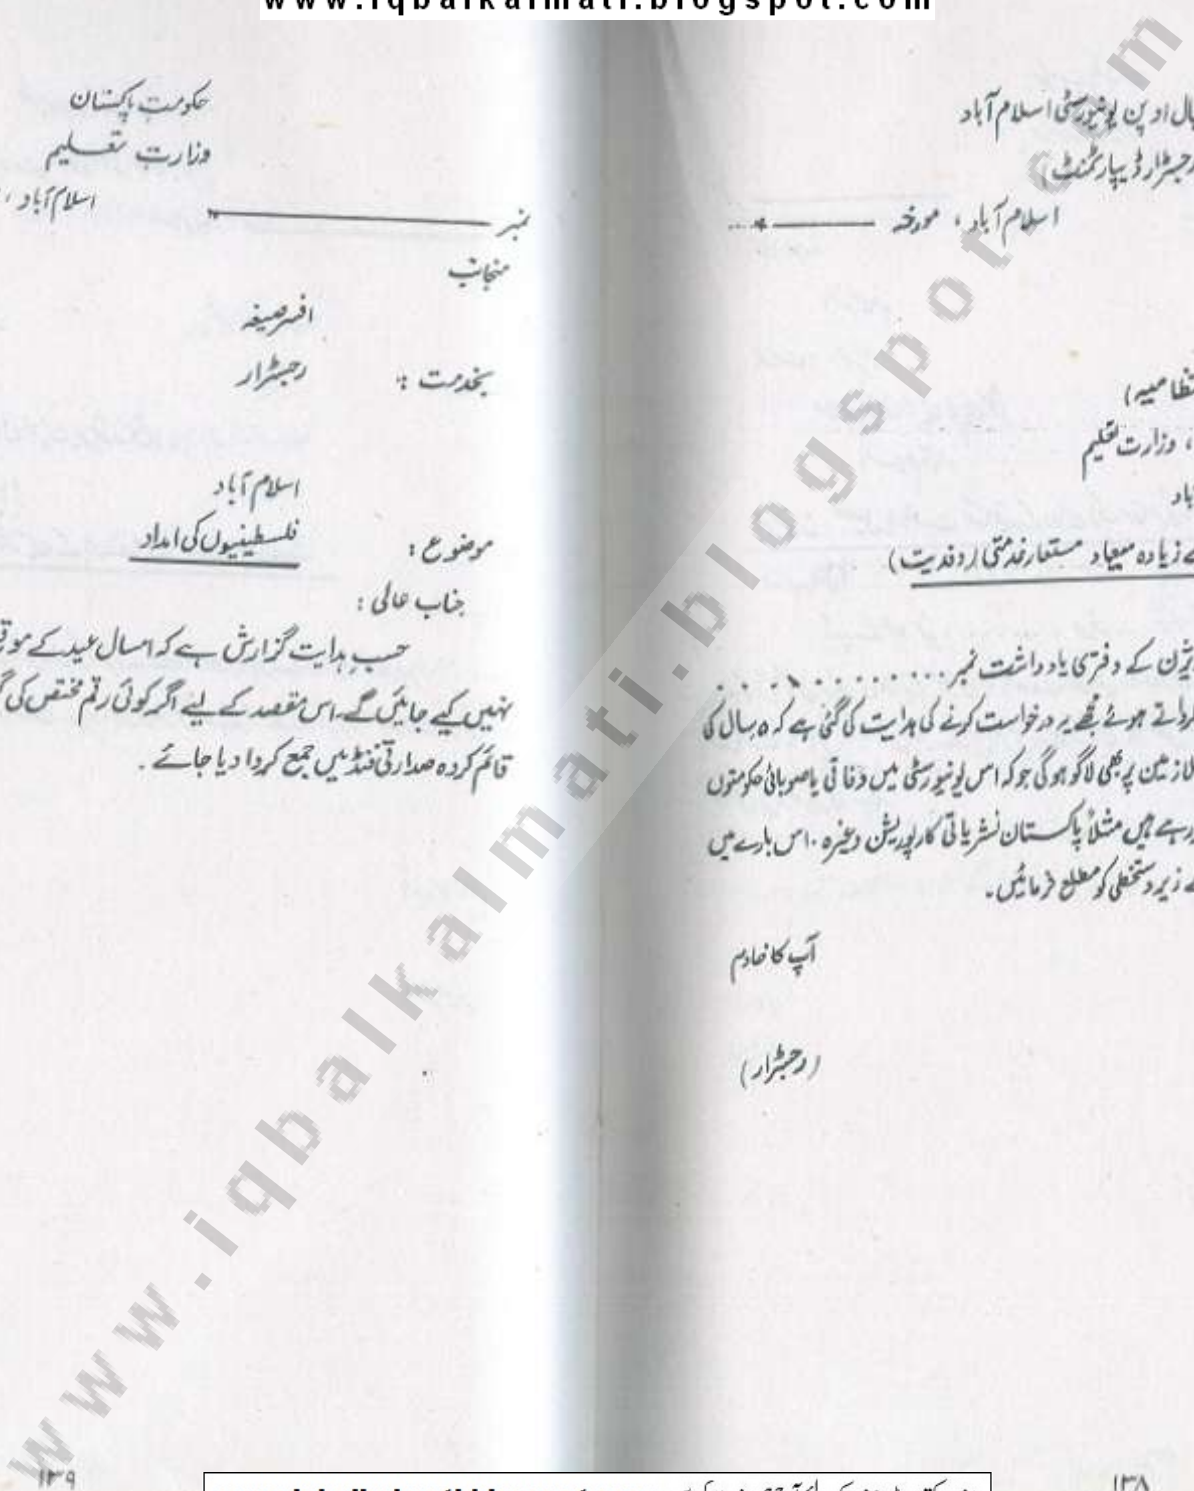 www.iqbalkalmati.blogspot.com
اوپن یونیورسٹی اسلام آباد
رجسٹرار ڈیپارٹمنٹ)
اسلام آباد ، مورخہ
، وزارت تعلیم
زیادہ میعاد مستعار خدمتی (ردفدیت)
کے دفتری یادداشت نمبر ..........
ہوئے مجھے یہ درخواست کرنے کی ہدایت کی گئی ہے کہ ۵ سال کی
پر بھی لاگو ہوگی جو کہ اس یونیورسٹی میں وفاقی یا صوبائی حکومتوں
رہے ہیں مثلاً پاکستان نشریاتی کارپوریشن وغیرہ ۔ اس بارے میں
زیر دستخطی کو مطلع فرمائیں۔
آپ کا خادم
(رجسٹرار)
۱۳۸
حکومت پاکستان
وزارت تعلیم
اسلام آباد ،
نمبر
منجانب
افسر صیغہ
بخدمت : رجسٹرار
اسلام آباد
موضوع : فلسطینیوں کی امداد
جناب عالی :
حسب ہدایت گزارش ہے کہ امسال عید کے
نہیں کیے جائیں گے۔ اس مقصد کے لیے اگر کوئی رقم مختص کی
قائم کردہ صدارتی فنڈ میں جمع کروا دیا جائے ۔
۱۳۹
www.iqbalkalmati.blogspot.com